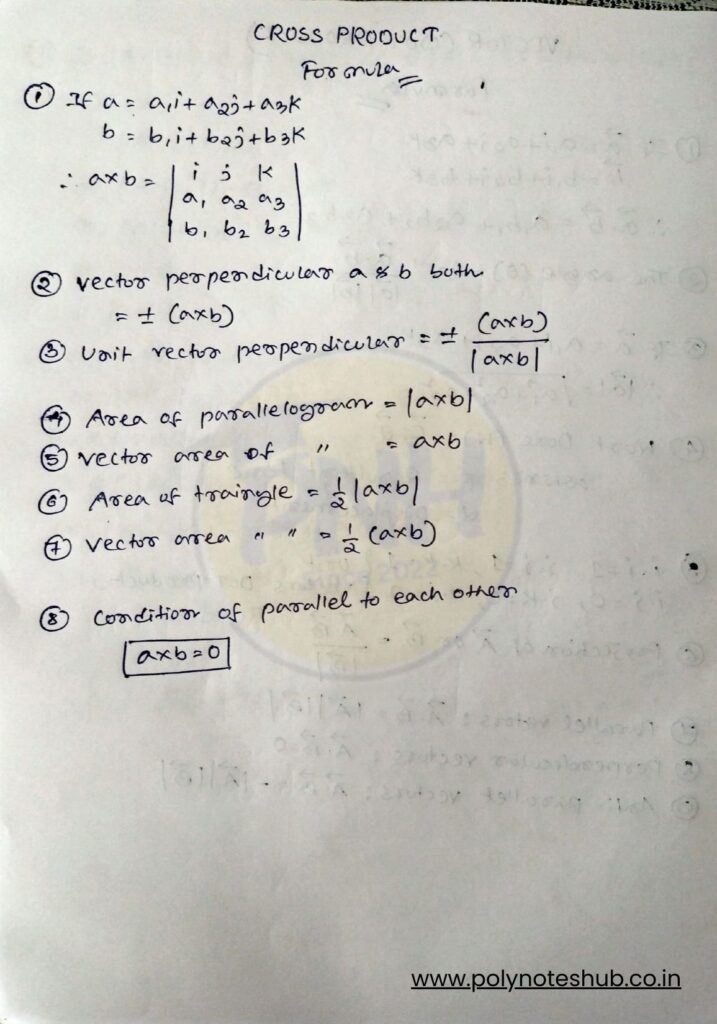 CROSS PRODUCT
Formula
① If a = a₁i + a₂j + a₃k
b = b₁i + b₂j + b₃k
∴ a×b = | i j k |
| a₁ a₂ a₃ |
| b₁ b₂ b₃ |
② vector perpendicular a & b both
= ± (a×b)
③ Unit vector perpendicular = ± (a×b) / |a×b|
④ Area of parallelogram = |a×b|
⑤ vector area of " = a×b
⑥ Area of traingle = 1/2 |a×b|
⑦ vector area " " = 1/2 (a×b)
⑧ condition of parallel to each other
a×b=0
www.polynoteshub.co.in